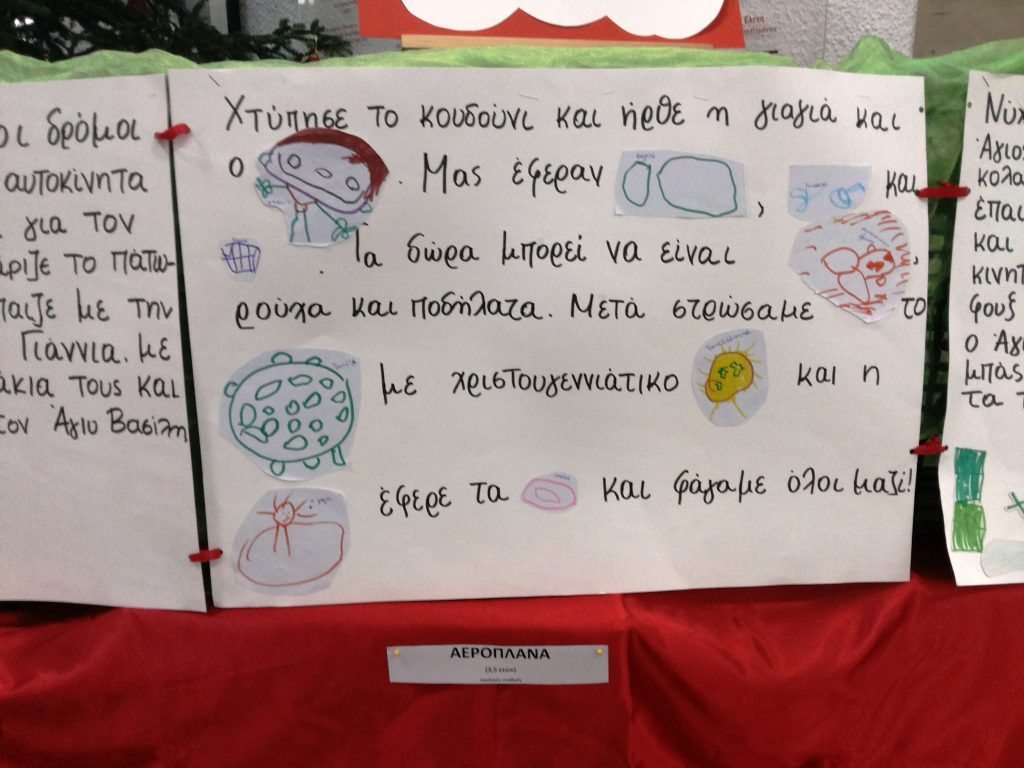 οι δρόμοι
αυτοκίνητα
για τον
άριζε το πάτω-
παιζε με την
Γιάννια. με
άκια τους και
τον Άγιυ Βασίλη
Χτύπησε το κουδούνι και ήρθε η γιαγιά και
ο . Μας έφεραν , και
. Τα δώρα μπορεί να είναι ,
ρούχα και ποδήλατα. Μετά στρώσαμε το
με χριστουγεννιάτικο και η
έφερε τα και φάγαμε όλοι μαζί!
Νύχ
Άγιο
κολα
έπαι
και
κινητ
φουξ
ο Άγι
μπάς
τα τ
ΑΕΡΟΠΛΑΝΑ